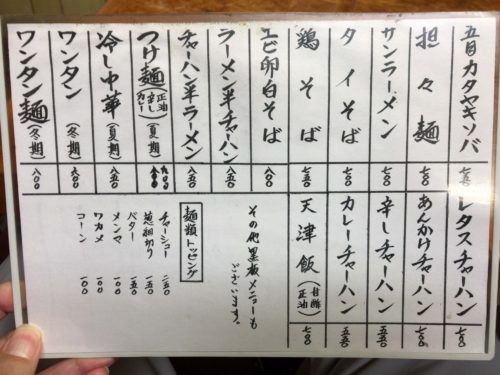 五目カタヤキソバ 七五〇
担々麺 七〇〇
サンラーメン 七〇〇
タイそば 七五〇
鶏そば 七五〇
エビ卵白そば 八〇〇
ラーメン半チャーハン 八五〇
チャーハン半ラーメン 八五〇
つけ麺(正油 辛し カレー)(夏期)
冷し中華(夏期) 八〇〇
ワンタン(冬期)
ワンタン麺(冬期) 八〇〇
レタスチャーハン 七〇〇
あんかけチャーハン 七〇〇
辛しチャーハン 五五〇
カレーチャーハン 五五〇
天津飯(甘酢 正油) 七〇〇
その他黒板メニューも
ございます。
麺類トッピング
チャーシュー 二五〇
葱細切り 一五〇
バター 一五〇
メンマ 一〇〇
ワカメ 一〇〇
コーン 一〇〇